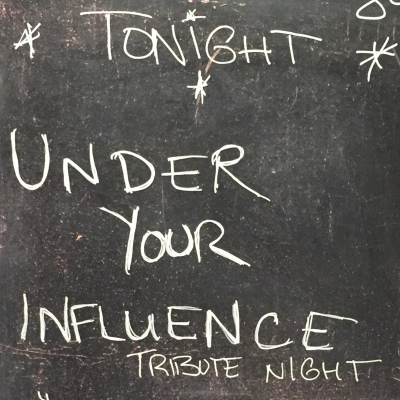 TONIGHT
UNDER
YOUR
INFLUENCE
TRIBUTE NIGHT